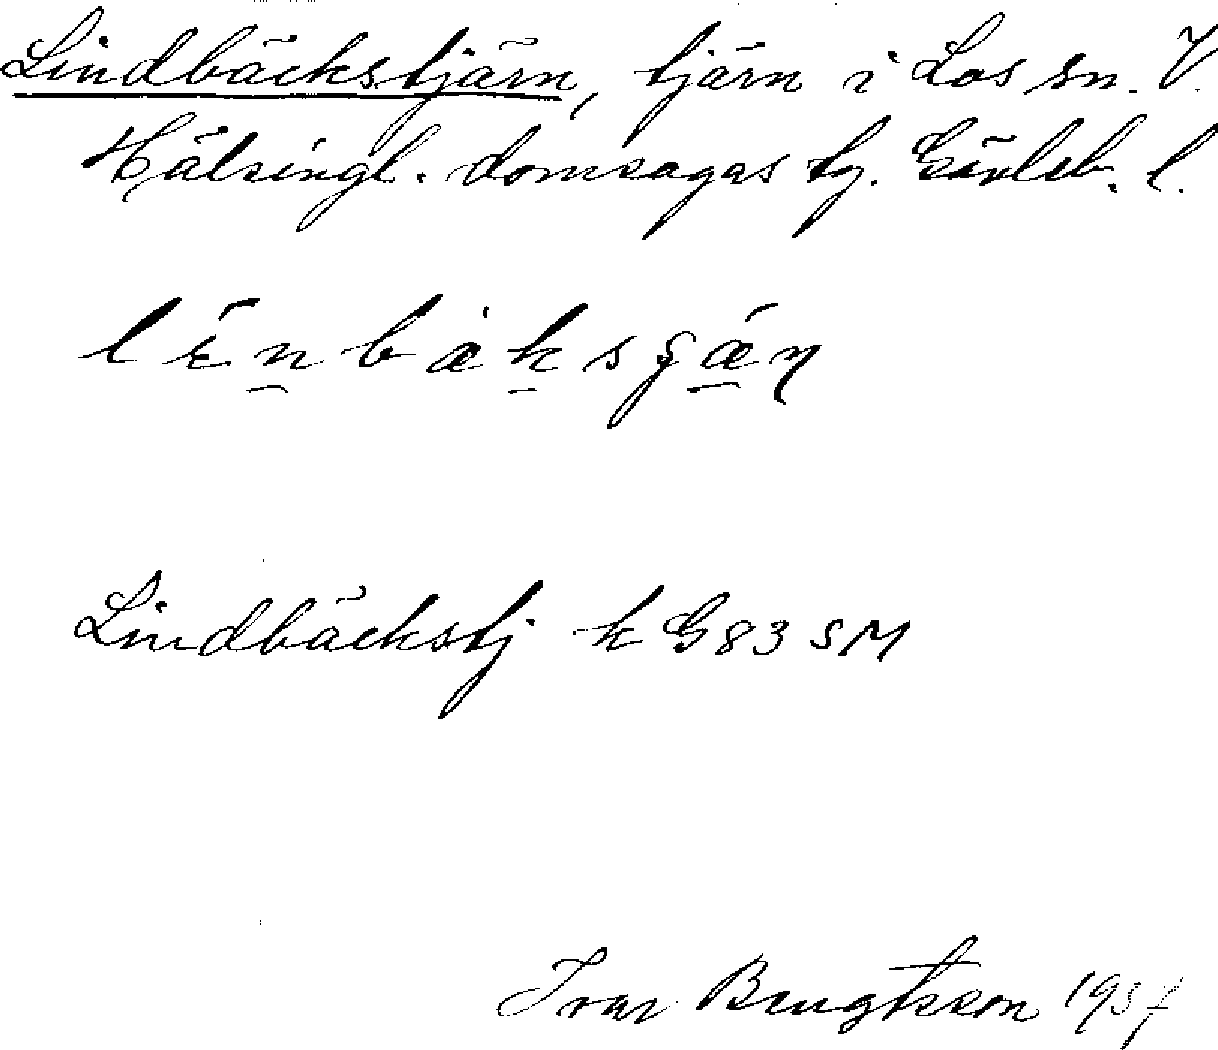 Lindbäckstjärn, tjärn i Los sn. V.
Hälsingl. domsagas tg. Gävleb. l.
Lindbäckstj k G 83 SM
Ivar Bengtsson 1937